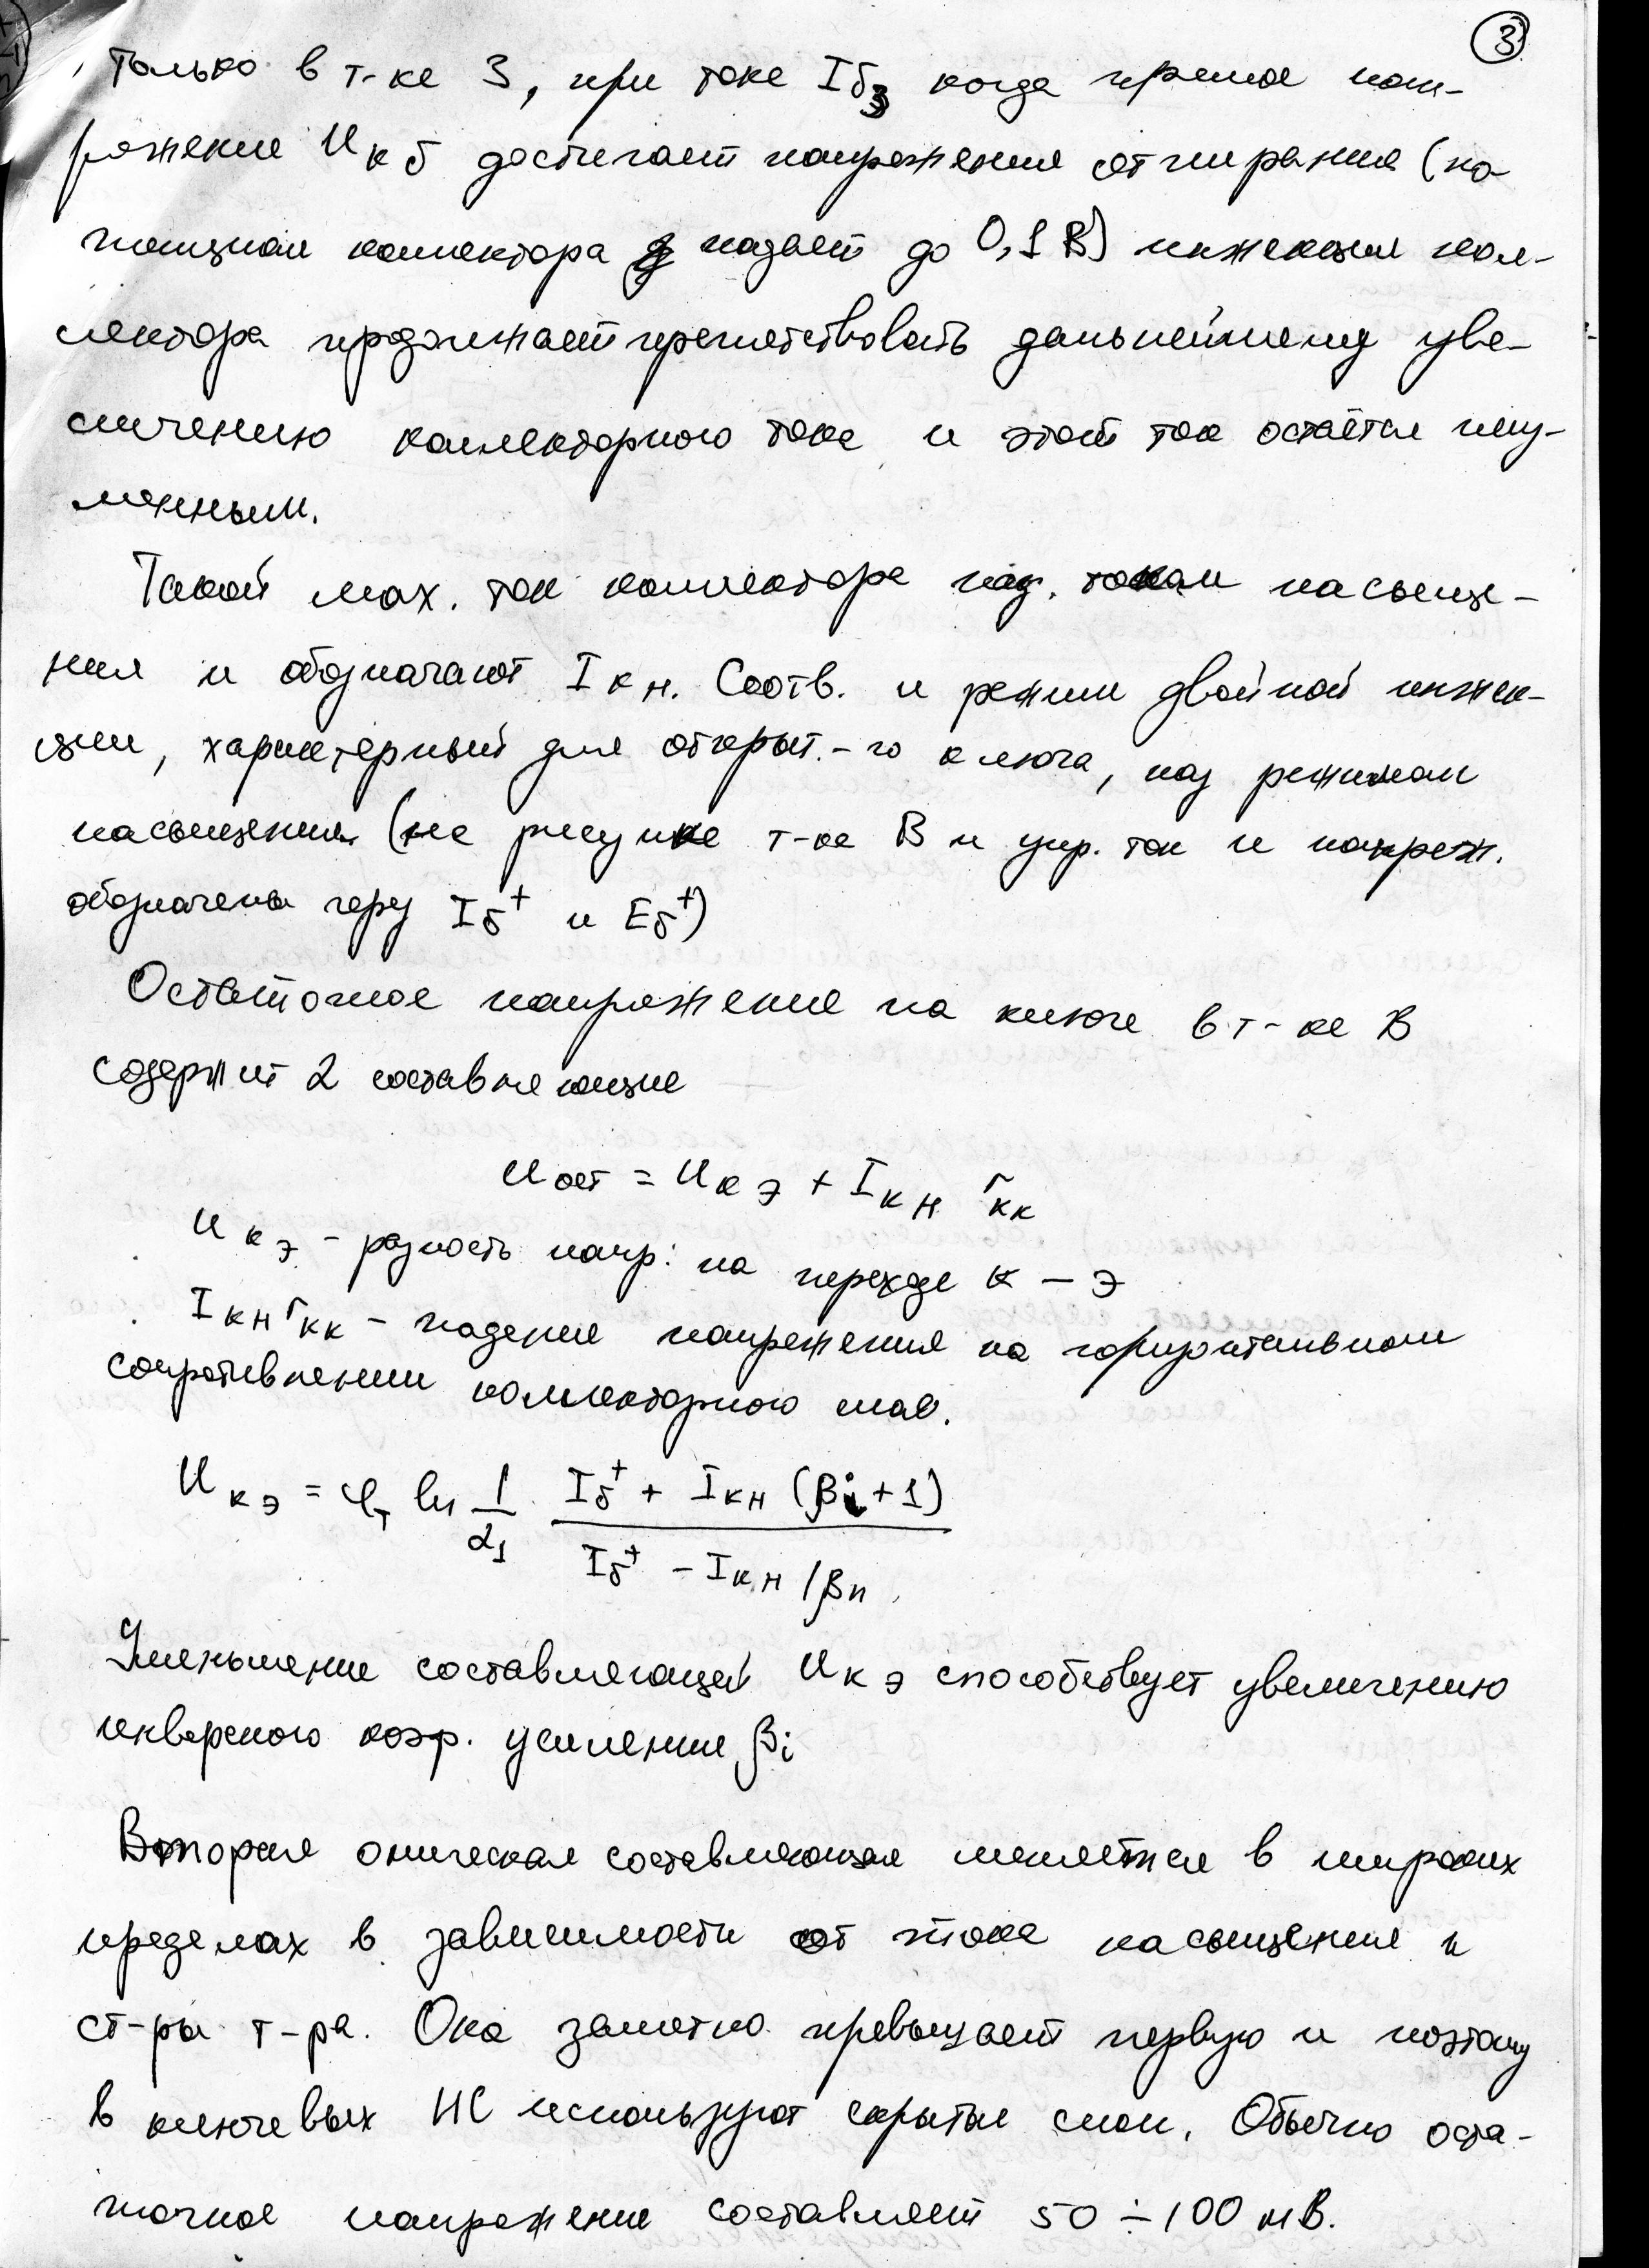 3
только в т-ке 3, при токе Iб3 когда прямое нап-
ряжение Uкб достигает напряжения отпирания (по-
тенциал коллектора падает до 0,1 В) инжекция кол-
лектора продолжает препятствовать дальнейшему уве-
личению коллекторного тока и этот ток остаётся неиз-
менным.
Такой мах. ток коллектора наз. током насыще-
ния и обозначают Iкн. Соотв. и режим двойной инжек-
ции, характерный для открыт.-го ключа, наз режимом
насыщения (на рисунке т-ка В и упр. ток и напряж.
обозначены через Iб⁺ и Eб⁺)
Остаточное напряжение на ключе в т-ке В
содержит 2 составляющие
Uост = Uкэ + Iкн rкк
Uкэ - разность напр. на переходе К — Э
Iкн rкк - падение напряжения на горизонтальном
сопротивлении коллекторного слоя.
Uкэ = φт ln 1/α1 · (Iб⁺ + Iкн (βi+1)) / (Iб⁺ - Iкн/βn)
Уменьшение составляющей Uкэ способствует увеличению
инверсного коэф. усиления βi
Вторая омическая составляющая меняется в широких
пределах в зависимости от тока насыщения и
ст-ры т-ра. Она заметно превышает первую и поэтому
в ключевых ИС используют скрытые слои. Обычно оста-
точное напряжение составляет 50 ÷ 100 мВ.